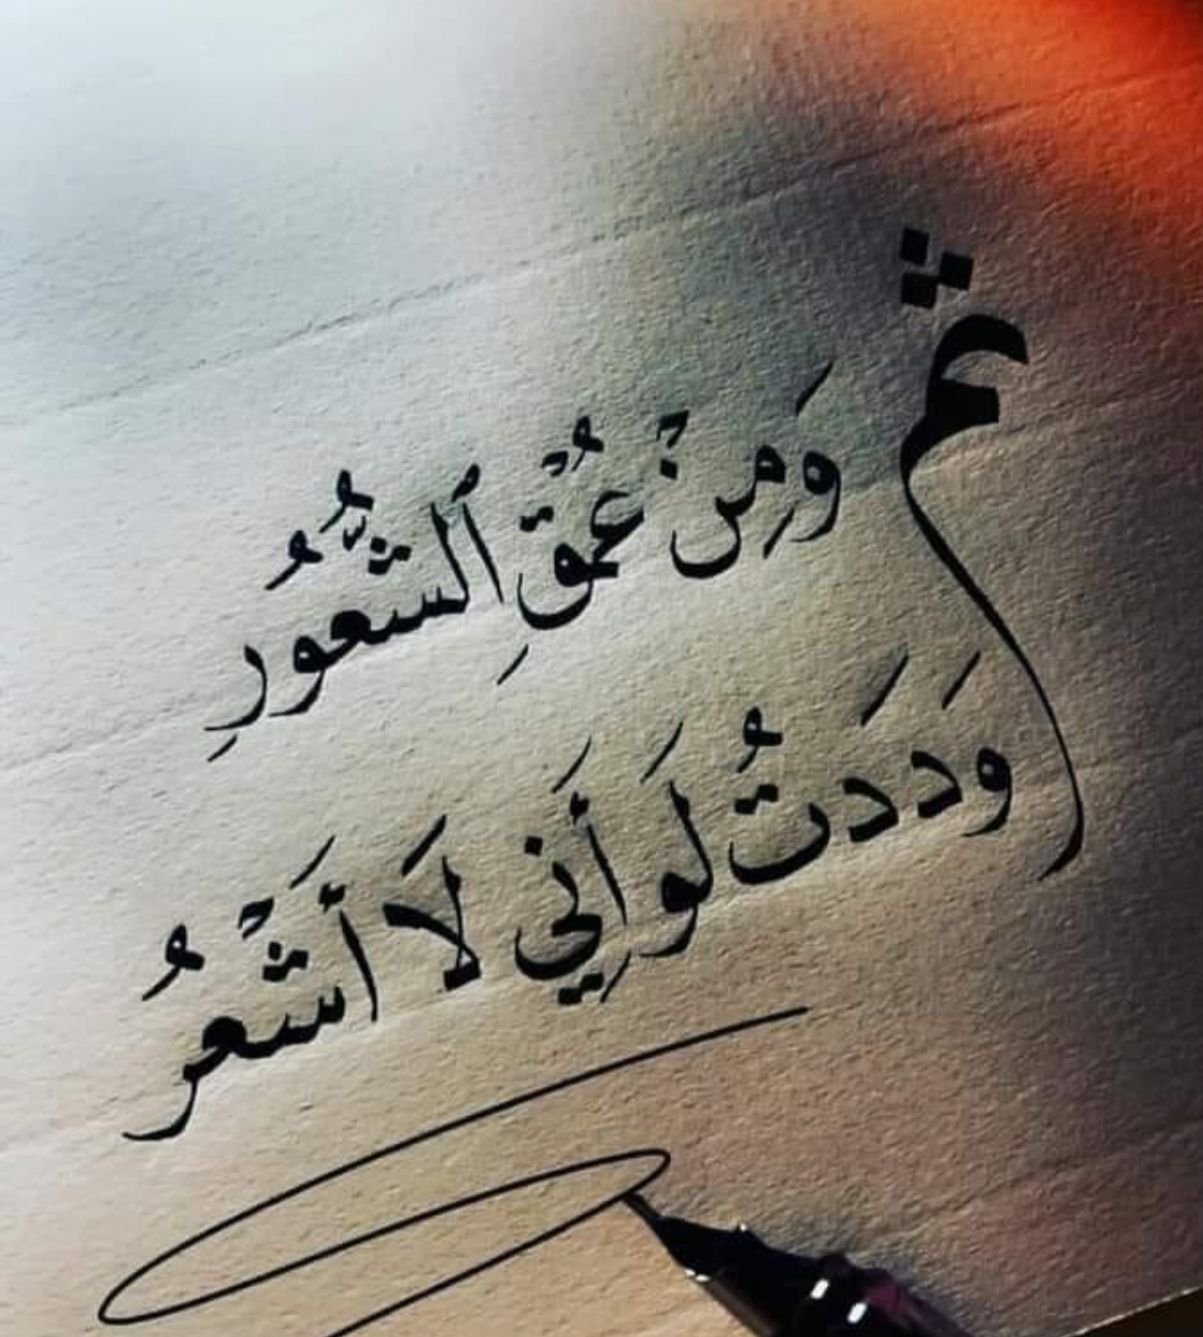 ثم وَمِنْ عُمْقِ ٱلشُّعُورِ
وَدَدَتُ لَو أَنِي لَا أَشْعرُ